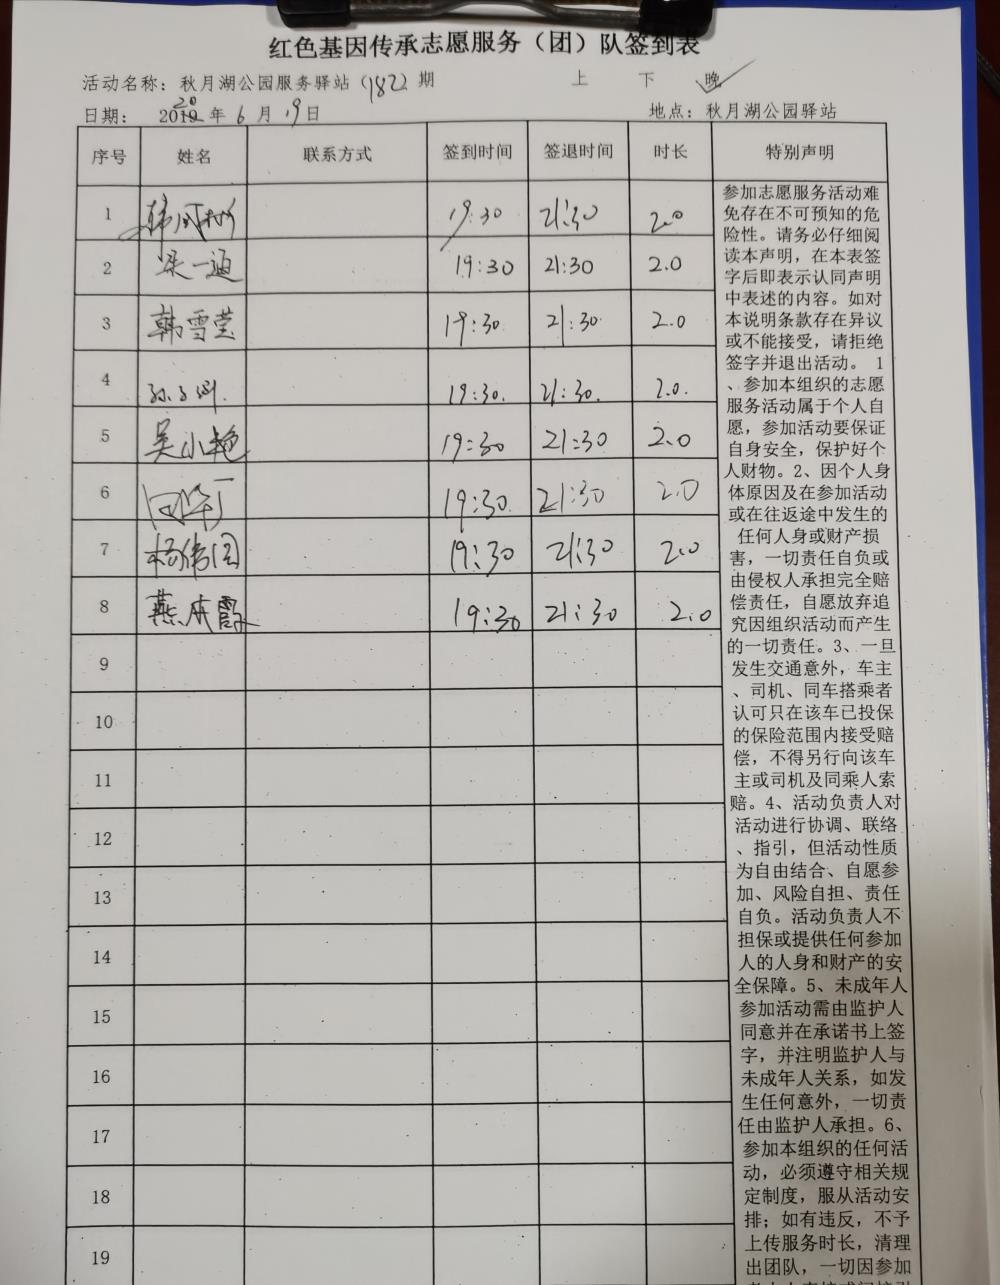 红色基因传承志愿服务（团）队签到表
活动名称：秋月湖公园服务驿站(182)期 上 下 晚
日期：2020年6月19日 地点：秋月湖公园驿站
序号 姓名 联系方式 签到时间 签退时间 时长 特别声明
1 19:30 21:30 2.0
2 梁一通 19:30 21:30 2.0
3 韩雪莹 19:30 21:30 2.0
4 19:30. 21:30. 2.0.
5 吴小艳 19:30 21:30 2.0
6 19:30 21:30 2.0
7 19:30 21:30 2.0
8 燕成霞 19:30 21:30 2.0
9
10
11
12
13
14
15
16
17
18
19
参加志愿服务活动难
免存在不可预知的危
险性。请务必仔细阅
读本声明，在本表签
字后即表示认同声明
中表述的内容。如对
本说明条款存在异议
或不能接受，请拒绝
签字并退出活动。 1
、参加本组织的志愿
服务活动属于个人自
愿，参加活动要保证
自身安全，保护好个
人财物。2、因个人身
体原因及在参加活动
或在往返途中发生的
任何人身或财产损
害，一切责任自负或
由侵权人承担完全赔
偿责任，自愿放弃追
究因组织活动而产生
的一切责任。3、一旦
发生交通意外，车主
、司机、同车搭乘者
认可只在该车已投保
的保险范围内接受赔
偿，不得另行向该车
主或司机及同乘人索
赔。4、活动负责人对
活动进行协调、联络
、指引，但活动性质
为自由结合、自愿参
加、风险自担、责任
自负。活动负责人不
担保或提供任何参加
人的人身和财产的安
全保障。5、未成年人
参加活动需由监护人
同意并在承诺书上签
字，并注明监护人与
未成年人关系，如发
生任何意外，一切责
任由监护人承担。6、
参加本组织的任何活
动，必须遵守相关规
定制度，服从活动安
排；如有违反，不予
上传服务时长，清理
出团队，一切因参加